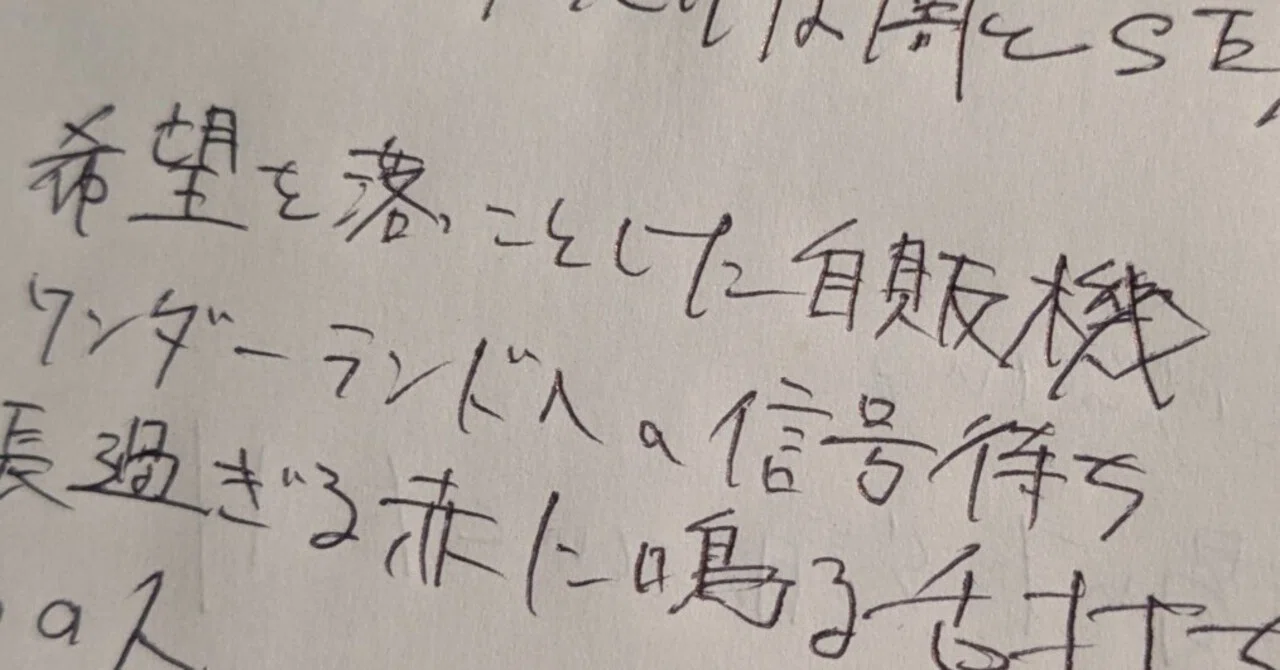 は周を
希望を落っことした自販機
ワンダーランドへの信号待ち
長過ぎる赤に鳴る舌打ち
の人